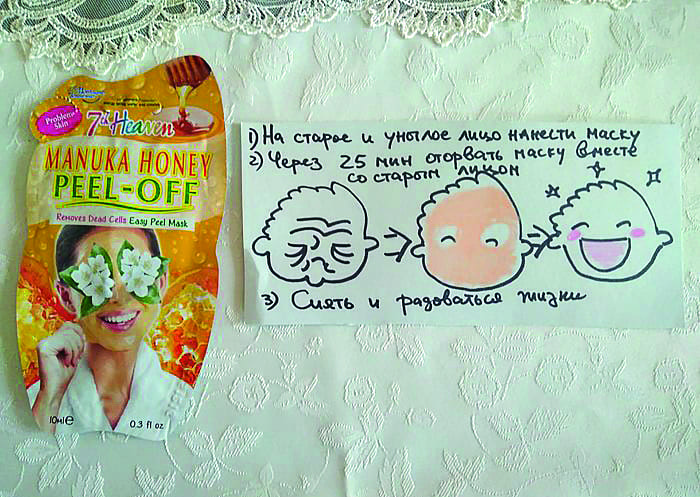 Problem
Skin
7th Heaven
MANUKA HONEY
PEEL-OFF
Removes Dead Cells Easy Peel Mask
10ml e
0.3 fl oz
1) На старое и унылое лицо нанести маску
2) Через 25 мин оторвать маску вместе
со старым лицом
3) Сиять и радоваться жизни